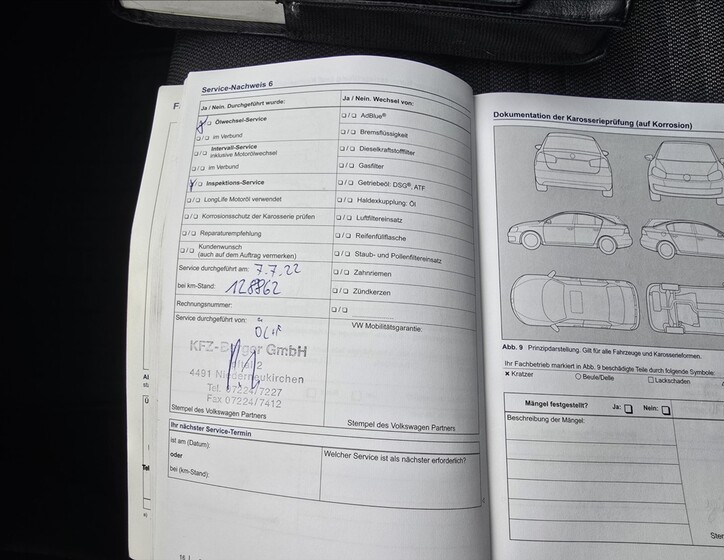 Service-Nachweis 6
Ja / Nein. Durchgeführt wurde:
Ölwechsel-Service
im Verbund
Intervall-Service
inklusive Motorölwechsel
im Verbund
Inspektions-Service
LongLife Motoröl verwendet
Korrosionsschutz der Karosserie prüfen
Reparaturempfehlung
Kundenwunsch
(auch auf dem Auftrag vermerken)
Service durchgeführt am: 7.7.22
bei km-Stand: 128862
Rechnungsnummer:
Service durchgeführt von:
KFZ- GmbH
2
4491 Niederneukirchen
Tel. 07224/7227
Fax 07224/7412
Stempel des Volkswagen Partners
Ja / Nein. Wechsel von:
AdBlue®
Bremsflüssigkeit
Dieselkraftstofffilter
Gasfilter
Getriebeöl: DSG®, ATF
Haldexkupplung: Öl
Luftfiltereinsatz
Reifenfüllflasche
Staub- und Pollenfiltereinsatz
Zahnriemen
Zündkerzen
VW Mobilitätsgarantie:
Stempel des Volkswagen Partners
Ihr nächster Service-Termin
ist am (Datum):
oder
bei (km-Stand):
Welcher Service ist als nächster erforderlich?
16
Dokumentation der Karosserieprüfung (auf Korrosion)
Abb. 9 Prinzipdarstellung. Gilt für alle Fahrzeuge und Karosserieformen.
Ihr Fachbetrieb markiert in Abb. 9 beschädigte Teile durch folgende Symbole:
× Kratzer
Beule/Delle
Lackschäden
Mängel festgestellt? Ja: Nein:
Beschreibung der Mängel: